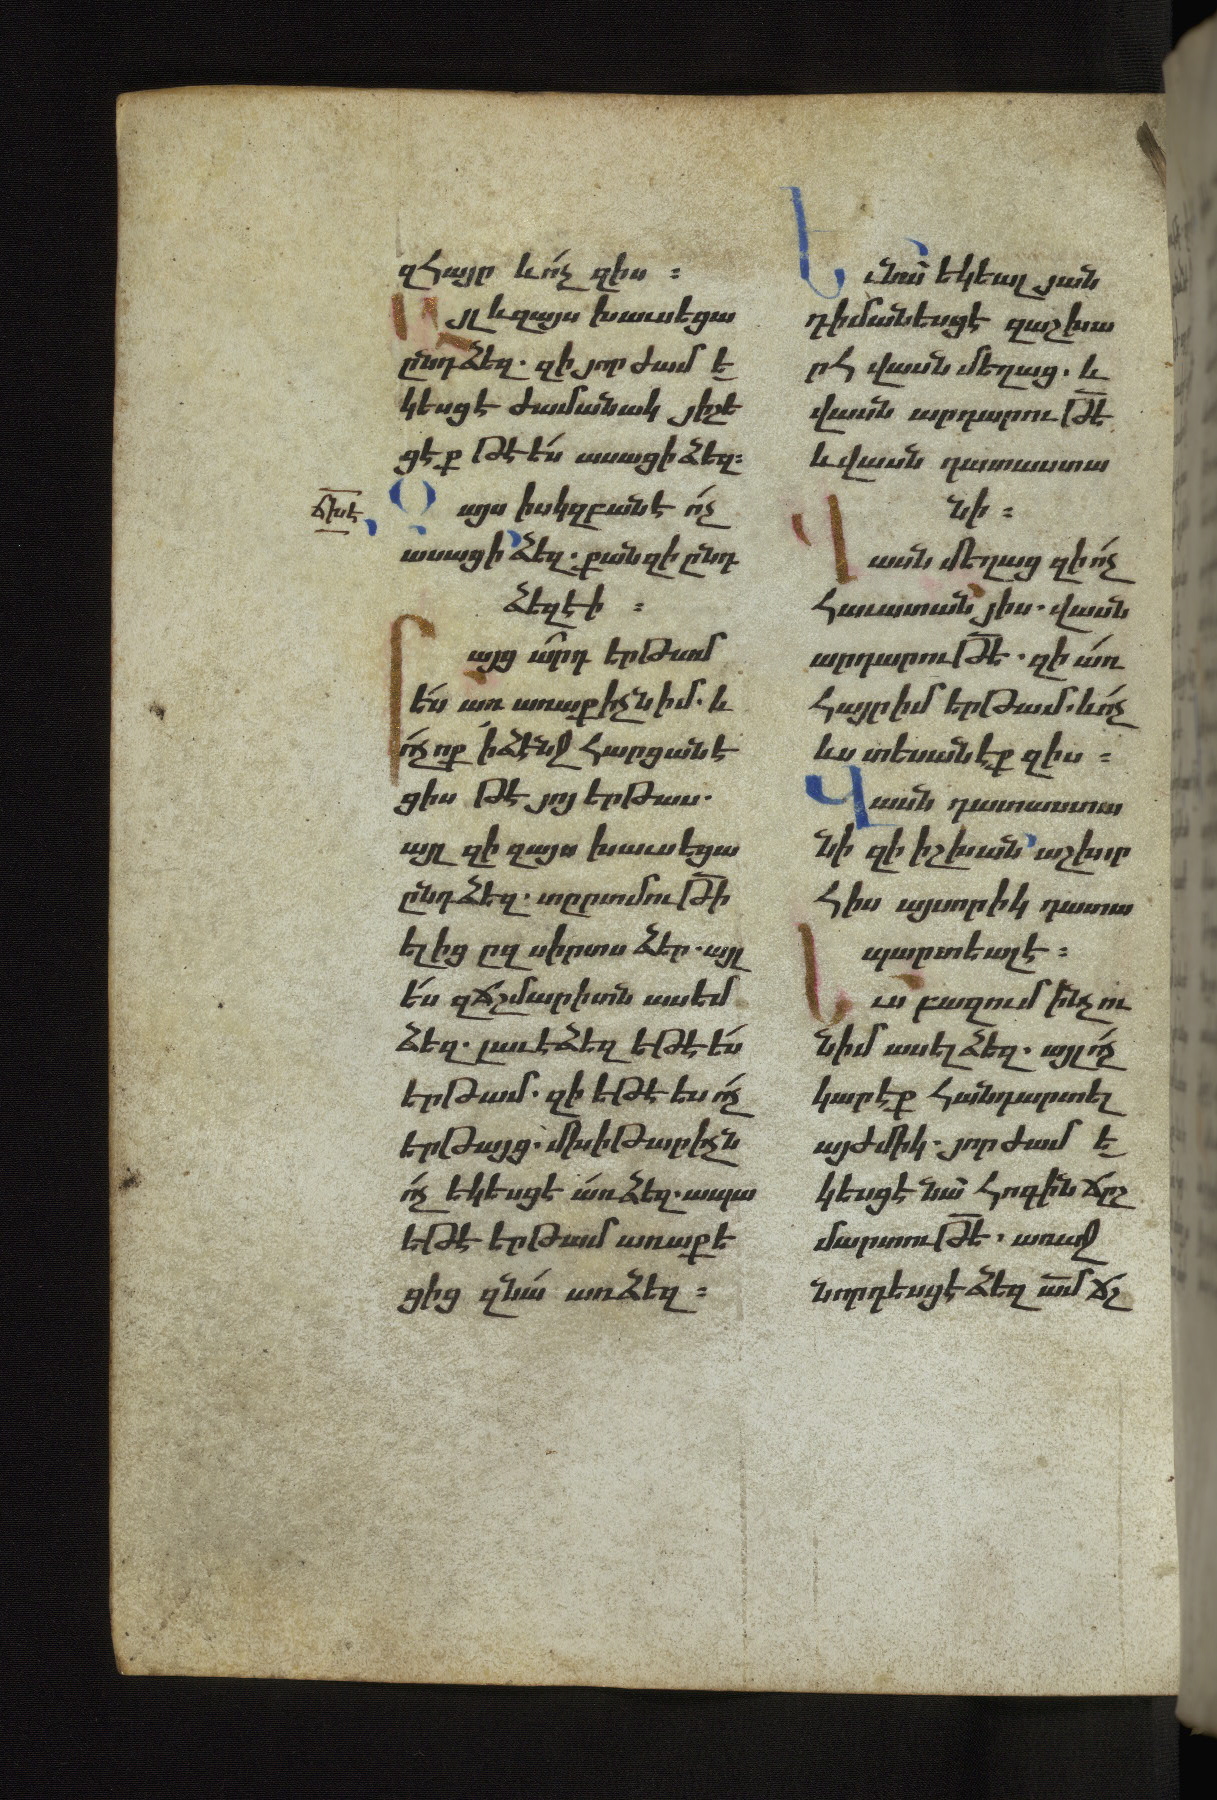 զՀայր և ոչ զիս ։
Այլ և զայս խաւսեցա
ընդ ձեզ. զի յորժամ ե
կեսցէ ժամանակ յիշե
ցէք թէ ես ասացի ձեզ։
ճխէ
Զայս իսկզբանէ ոչ
ասացի ձեզ. քանզի ընդ
ձեզ էի ։
Բայց արդ երթամ
ես առ առաքիչն իմ. և
ոչ ոք ի ձէնջ հարցանէ
ցիս թէ յոյ երթաս.
այլ զի զայս խաւսեցա
ընդ ձեզ. տրըտմութի
ելից ըզ սիրտս ձեր. այլ
ես զճշմարիտն ասեմ
ձեզ. լաւ է ձեզ եթէ ես
երթամ. զի եթէ ես ոչ
երթայց. մխիթարիչն
ոչ եկեսցե առ ձեզ. ապա
եթէ երթամ առաքե
ցից զնա առ ձեզ ։
ԵՒ նա եկեալ յան
դիմանեսցէ զաշխա
րհ վասն մեղաց. և
վասն արդարութե
և վասն դատաստա
նի ։
Վասն մեղաց զի ոչ
հաւատան յիս. վասն
արդարութե. զի առ
Հայր իմ երթամ. և ոչ
ևս տեսանէք զիս ։
Վասն դատաստա
նի զի իշխան աշխար
հիս այսորիկ դատա
պարտեալ է ։
ԵՒս բազում ինչ ու
նիմ ասել ձեզ. այլ ոչ
կարէք հանդարտել
այժմիկ. յորժամ ե
կեսցէ նա հոգին ճըշ
մարտութե. առաջ
նորդեսցէ ձեզ ամ ճշ